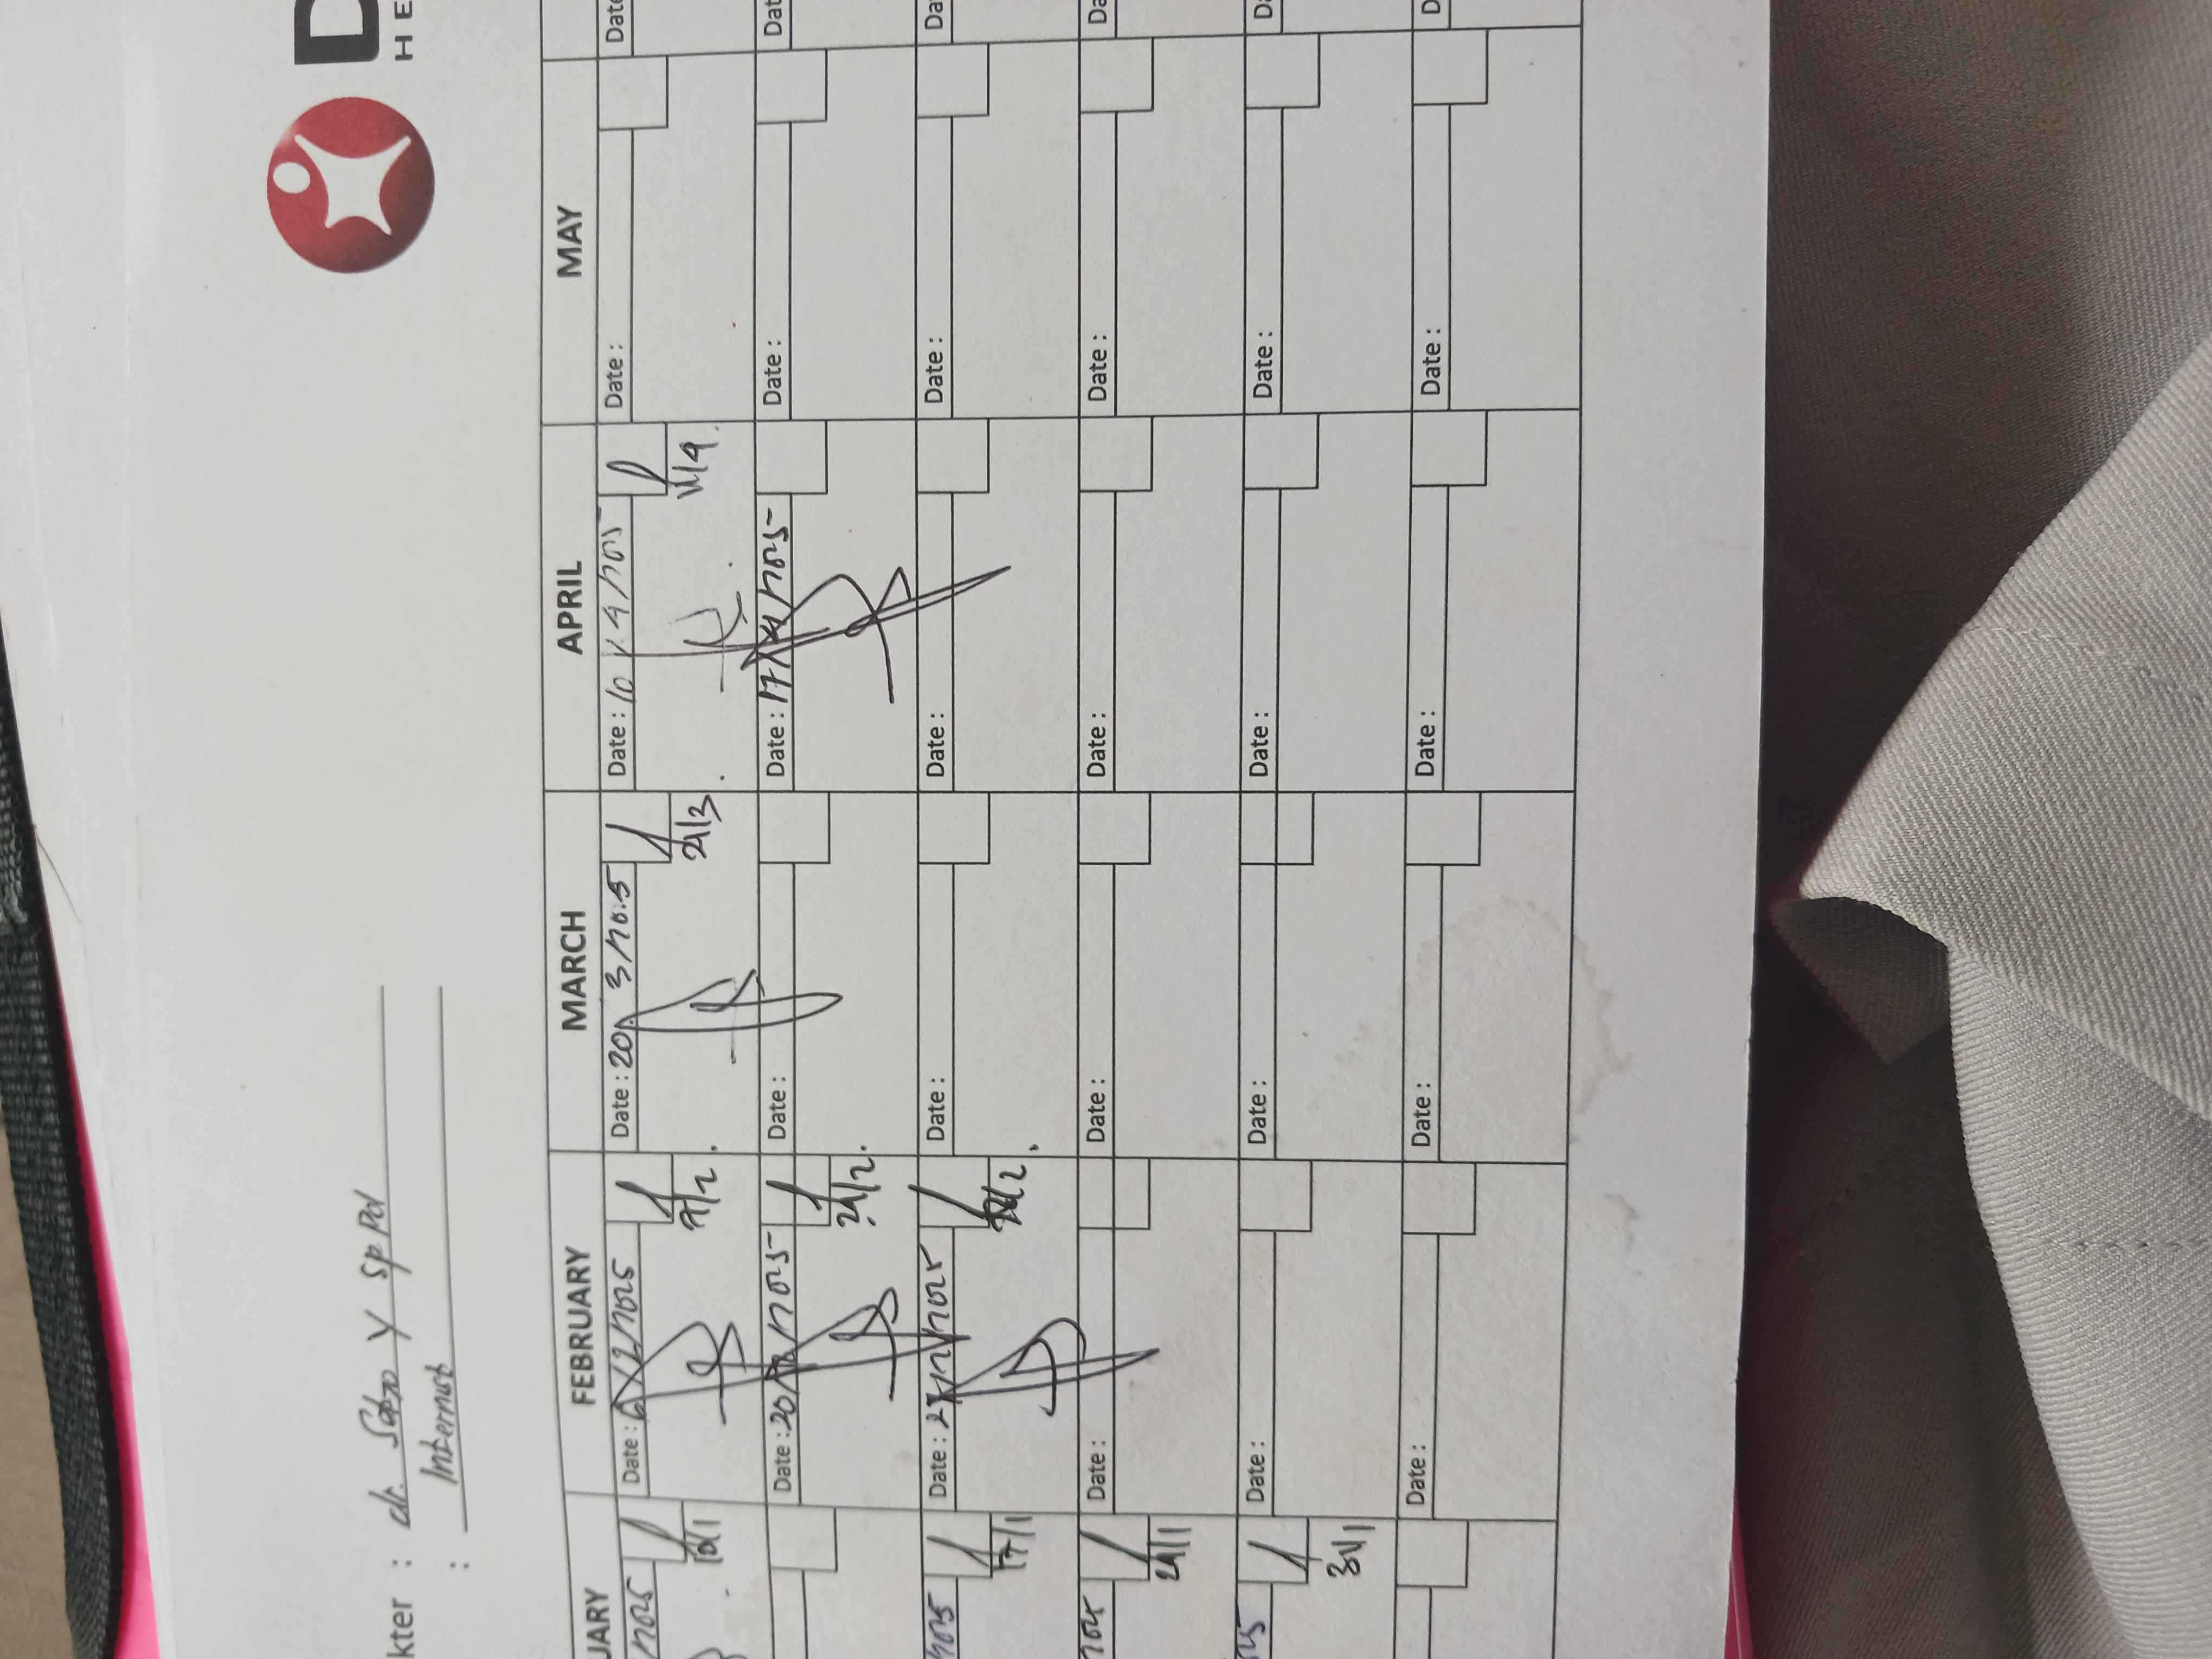 D
HE
kter : dr. Y Sp PD
: Internist
UARY FEBRUARY MARCH APRIL MAY
2025 Date : 6/2/2025 Date : 20/3/2025 Date : 10/4/2025 Date : Date
10/1 7/2 21/3 11/4
Date : 20/2/2025 Date : Date : 17/4/2025 Date : Dat
21/2
2025 Date : 27/2/2025 Date : Date : Date : Da
17/1
2025 Date : Date : Date : Date : Da
24/1
25 Date : Date : Date : Date : Da
31/1
Date : Date : Date : Date : D